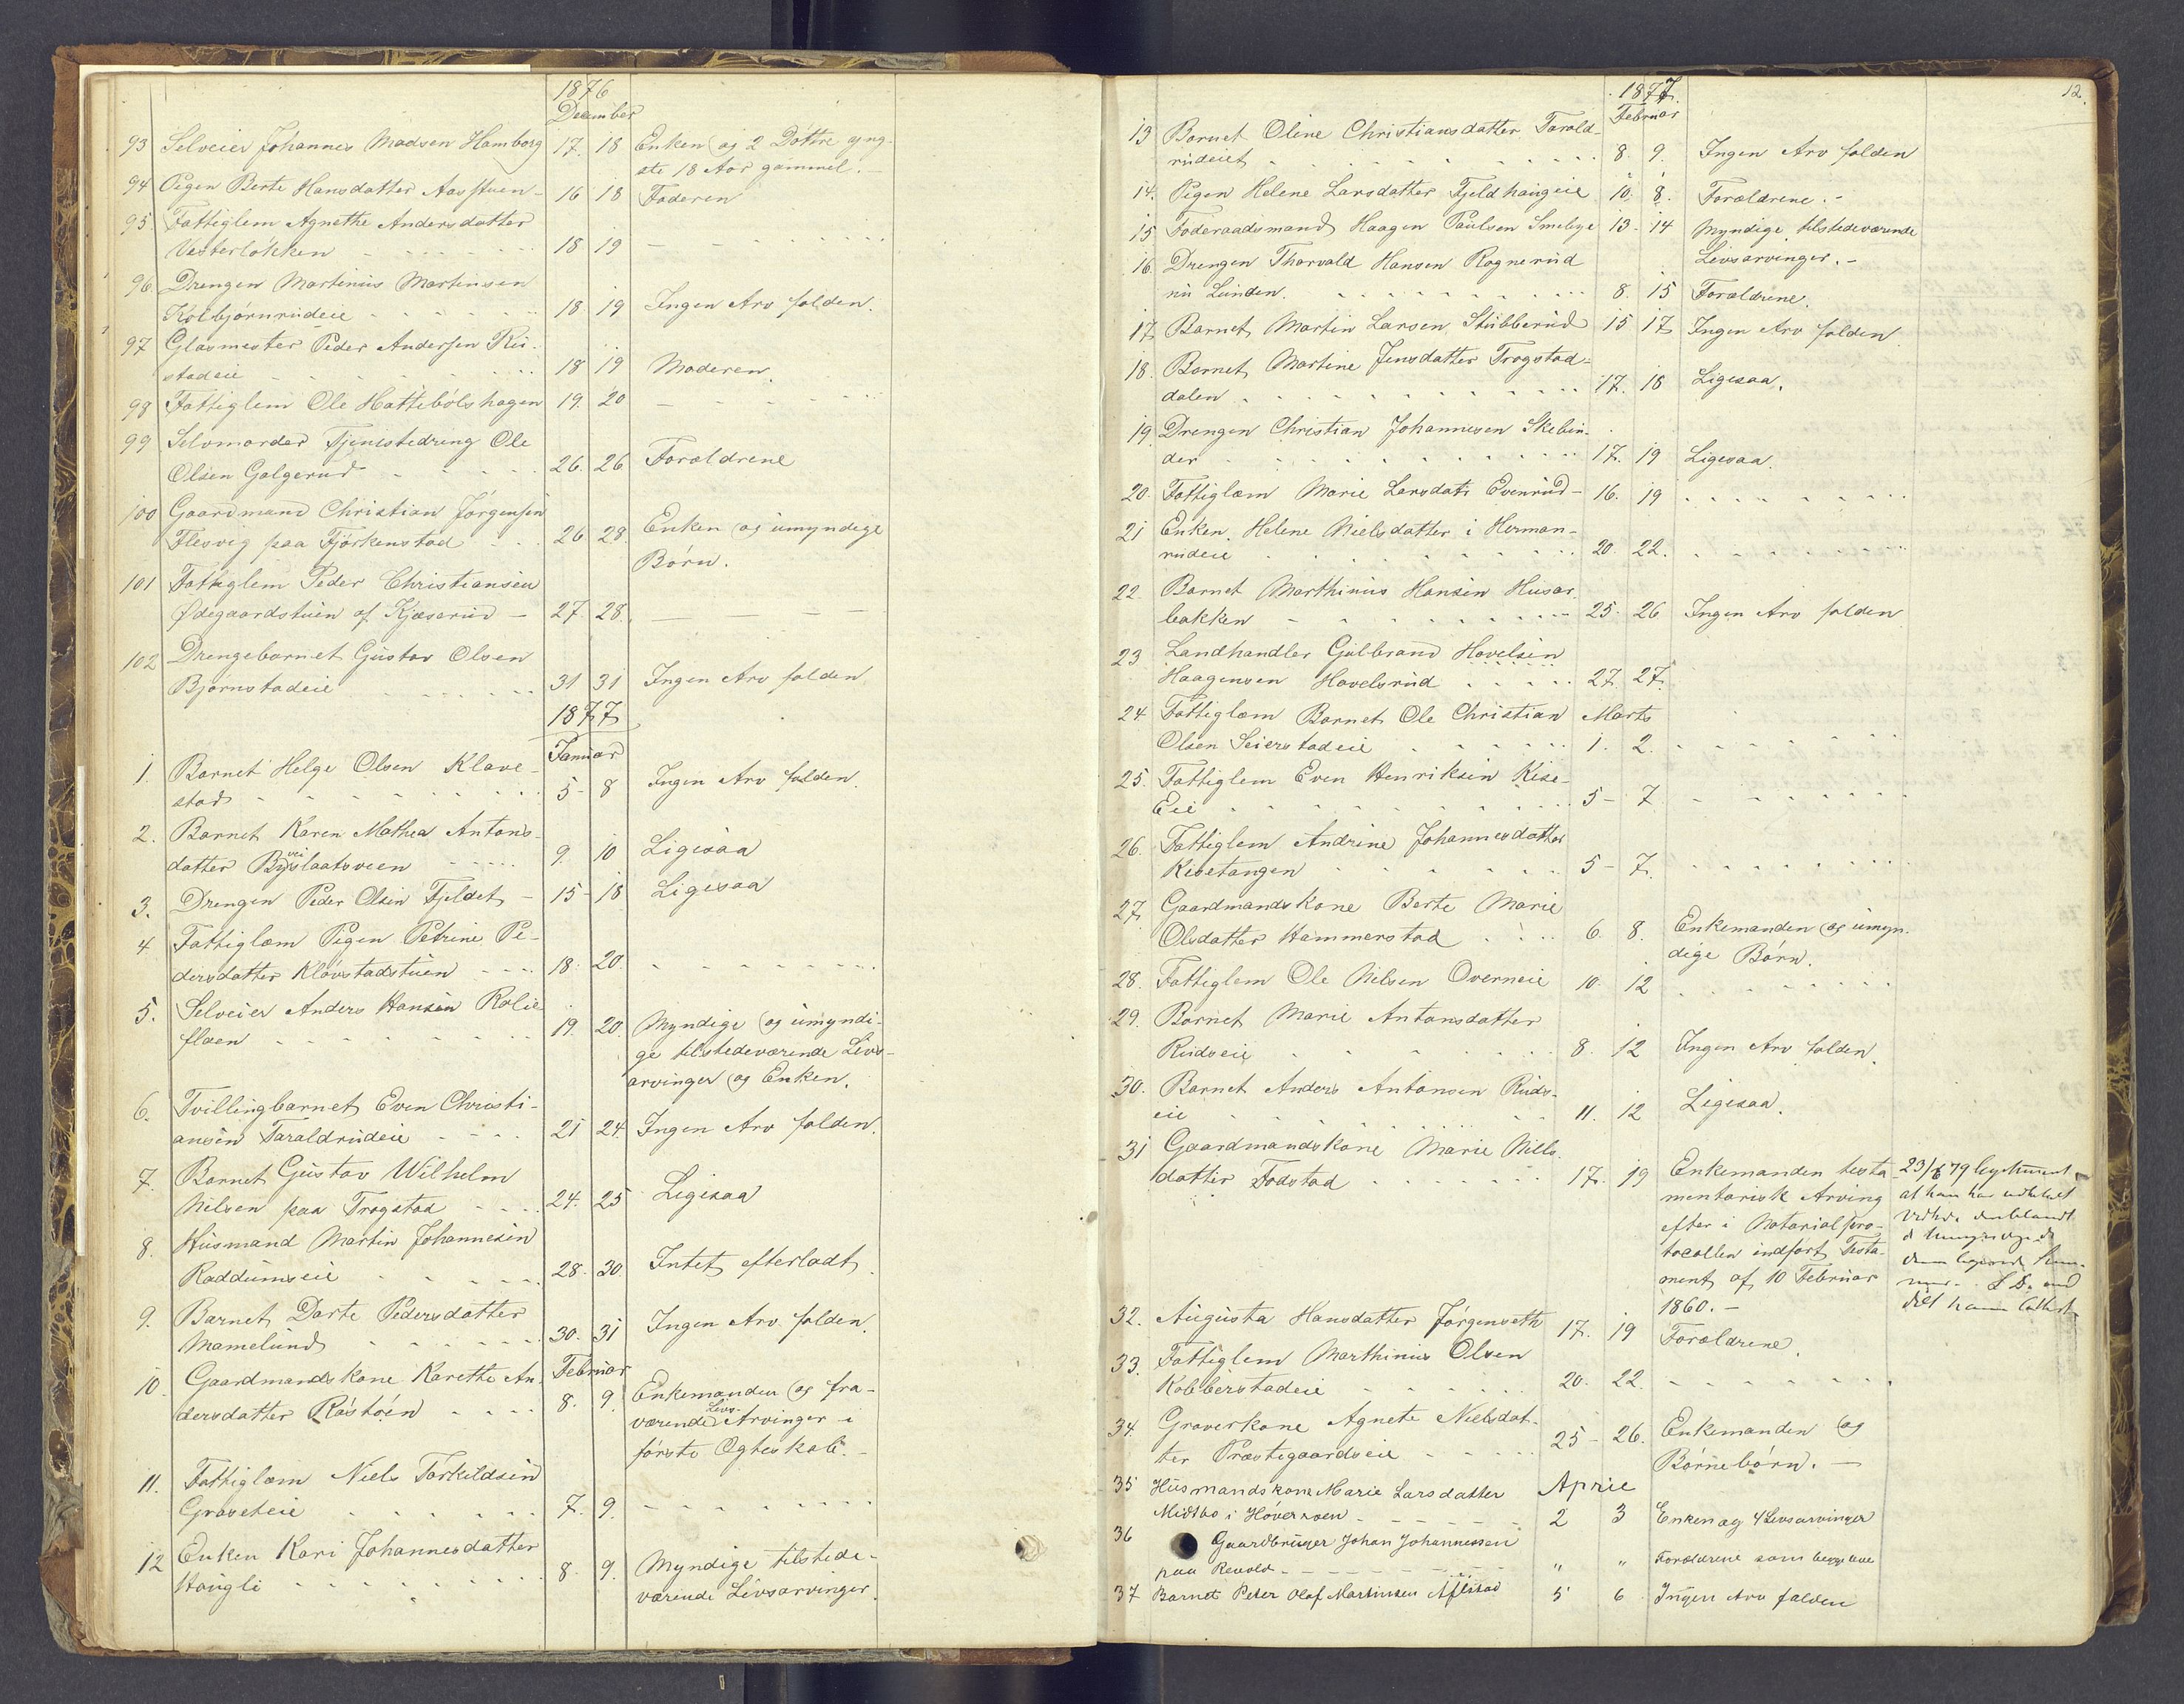 1876
December
93 Selveier Johannes Madsen Hamborg 17. 18 Enken og 2 Døttre yng-
ste 18 Aar gammel.
94 Pigen Berte Hansdatter Aasstuen - 16 18 Faderen
95 Fattiglem Agnethe Andersdatter
Vesterløkken 18 19
96. Drengen Martinius Martinsen
Kolbjørnrudeie 18 19 Ingen Arv falden.
97 Glasmester Peder Andersen Ru-
stadeie 18 19 Moderen.
98 Fattiglem Ole Hattebølshagen 19. 20
99 Selvmorder Tjenestedreng Ole
Olsen Galgerud 26. 26 Forældrene
100 Gaardmand Christian Jørgensen
Flesvig paa Fjørkenstad 26 28. Enken og umyndige
Børn.
101 Fattiglem Peder Christiansen
Ødegaardstuen af Kjæserud - 27. 28.
102 Drengebarnet Gustav Olsen
Bjørnstadeie 31 31 Ingen Arv falden
1877
Januar
1. Barnet Helge Olsen Klave-
stad 5- 8 Ingen Arv falden.
2. Barnet Karen Mathea Antons-
datter Byslaatsveen 9. 10 Ligesaa
3. Drengen Peder Olsen Fjeldet - 15- 18 Ligesaa
4 Fattiglæm Pigen Petrine Pe-
dersdatter Kløvstadstuen 18. 20.
5. Selveier Anders Hansen Rolie
flaen 19. 20. Myndige og umyndi-
ge tilstedeværende Livs-
arvinger og Enken.
6. Tvillingbarnet Even Christi-
ansen Taraldrudeie 21 24. Ingen Arv falden.
7. Barnet Gustav Wilhelm
Nilsen paa Trogstad 24. 25 Ligesaa
8. Husmand Martin Johannesen
Raddumseie 28. 30. Intet efterladt.
9. Barnet Dorte Pedersdatter
Mamelund 30. 31 Ingen Arv falden.
Februar
10. Gaardmandskone Karethe An-
dersdatter Røstøen 8. 9. Enkemanden og fra-
værende Livs-Arvinger i
første Ægteskab. -
11. Fattiglæm Niels Torkildsen
Graveteie 7. 9.
12 Enken Kari Johannesdatter
Haugli 8. 9. Myndige tilstede-
værende Livsarvinger.
12.
1877.
Februar
13 Barnet Oline Christiansdatter Tarald-
rudeiet 8. 9. Ingen Arv falden
14. Pigen Helene Larsdatter Fjeldhaugeie 10. 8. Forældrene. -
15 Føderaadsmand Haagen Paulsen Smebye 13- 14 Myndige tilstedeværende
Livsarvinger. -
16. Drengen Thorvald Hansen Rognerud
nu Lunden. 8. 15 Forældrene.
17. Barnet Martin Larsen Stubberud 15 17 Ingen Arv falden.
18. Barnet Martine Jensdatter Trogstad-
dalen 17. 18 Ligesaa.
19. Drengen Christian Johannesen Skebin-
der 17. 19 Ligesaa.
20. Fattiglæm Marie Larsdatr Evenrud - 16. 19
21 Enken Helene Nielsdatter i Herman-
rudeie 20. 22.
22. Barnet Marthinius Hansen Husar-
bakken 25. 26 Ingen Arv falden
23 Landhandler Gulbrand Hovelsen
Haagensen Hovelsrud 27. 27.
24 Fattiglæm Barnet Ole Christian Marts
Olsen Seierstadeie 1. 2.
25. Fattiglem Even Henriksen Kise-
Eie 5- 7
26. Fattiglem Andrine Johannesdatter
Kisetangen 5- 7.
27. Gaardmandskone Berte Marie
Olsdatter Hammerstad 6. 8. Enkemanden og umyn-
dige Børn.
28. Fattiglem Ole Nilsen Overneie 10. 12
29. Barnet Marie Antonsdatter
Rudseie 8. 12 Ingen Arv falden.
30. Barnet Anders Antonsen Ruds-
eie 11. 12 Ligesaa.
31 Gaardmandskone Marie Nills-
datter Fodstad 17. 19 Enkemanden testa-
mentarisk Arving
efter i Notarialpro-
tocollen indført Testa-
ment af 10 Februar
1860. -
23/6 79
at han har
32. Augusta Hansdatter Jørgenseth 17. 19 Forældrene.
33. Fattiglem Marthinius Olsen
Kobberstadeie 20. 22.
34. Graverkone Agnete Nielsdat-
ter Præstegaardseie 25- 26. Enkemanden og
Børnebørn. -
35 Husmandskone Marie Larsdatter April
Midtbø i Høversøen 2 3 Enken og 4 Livsarvinger
36 Gaardbruger Johan Johannessen
paa Revold " " Forældrene som begge leve
37 Barnet Peter Olaf Martinsen Aflstad 5 6 Ingen Arv falden